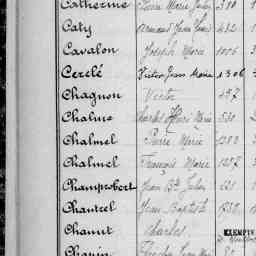 Catherine Pierre Marie Jules 310
Caty Armand Jean Louis 432
Cavalon Joseph Marie 1006
Cerclé Victor Jean Marie 1306
Chagnon Victor 457
Chalme Charles Henri Marie 530
Chalmel Pierre Marie 1283
Chalmel François Marie 1257
Champrobert Jean Bte Jules 221
Chantrel Jean Baptiste 1538
Chanut Charles
Chapin